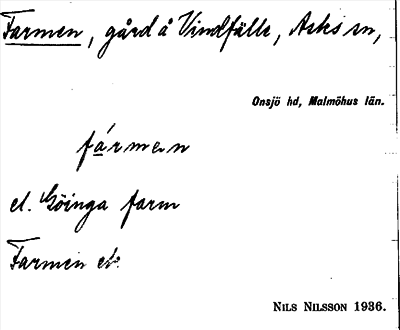 Farmen, gård å Vindfälle, Asks sn,
Onsjö hd, Malmöhus län.
fármen
el. Göinga farm
Farmen
NILS NILSSON 1936.